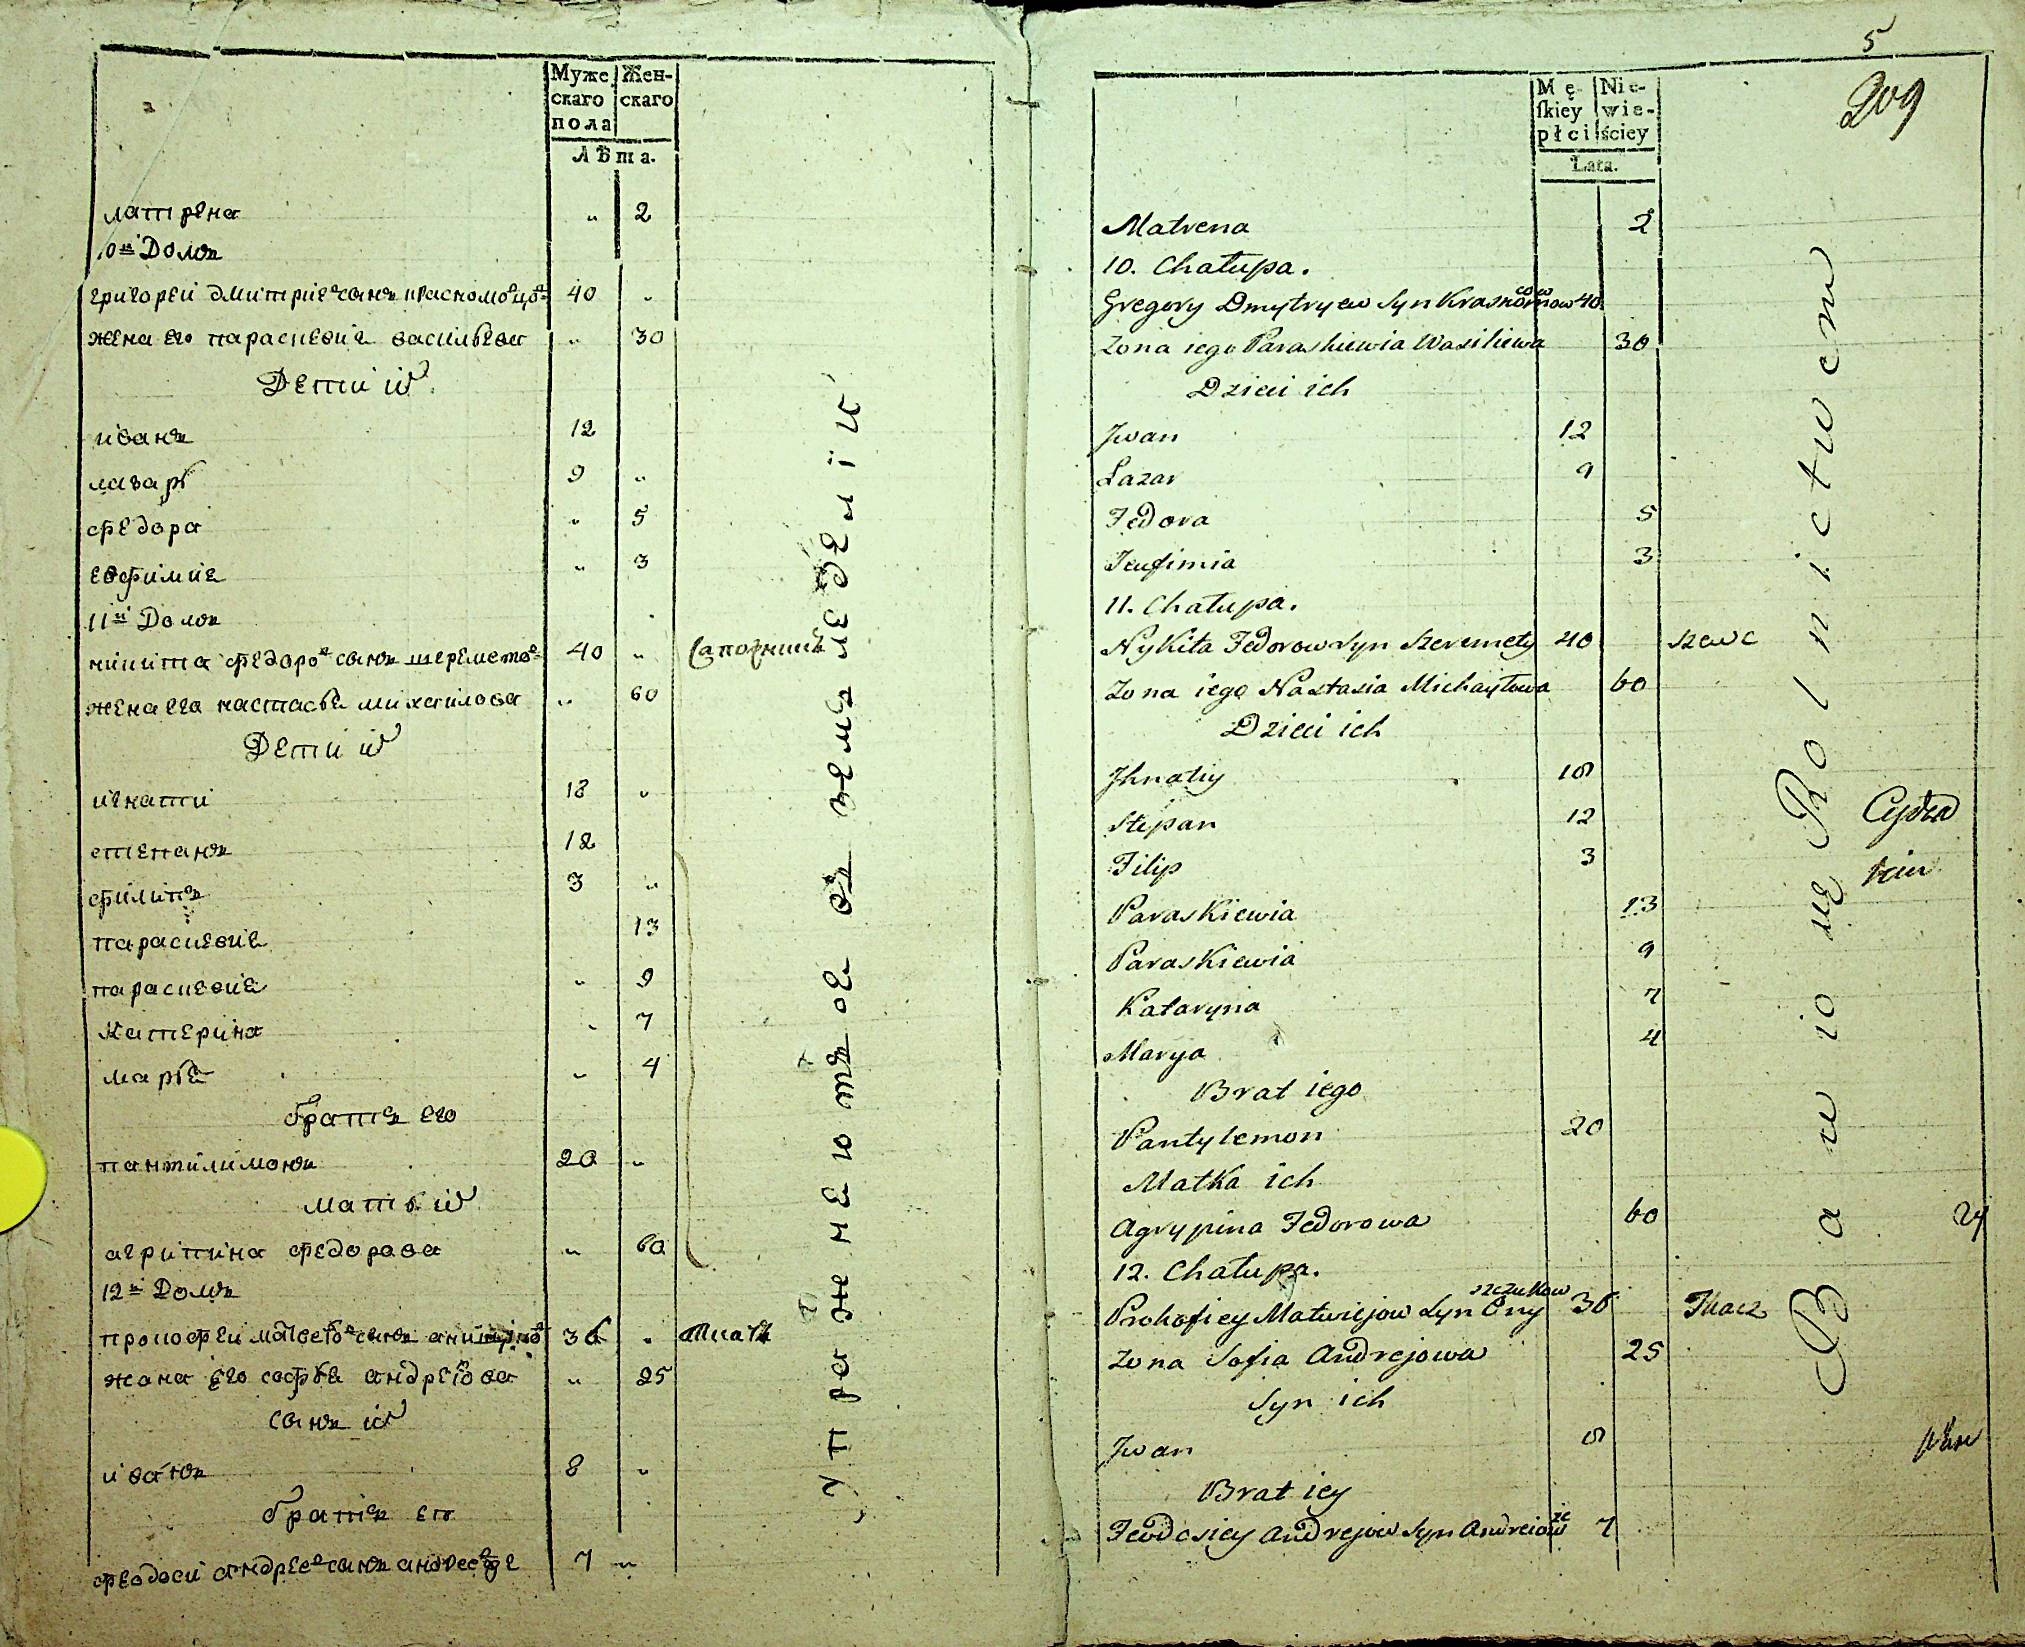 Муже
скаго
пола
Жен-
скаго
Лѣта.
матрена " 2
10й Домъ
григорей дмитриевъ сынъ красномовцовъ 40 "
жена его параскевия васильева " 30
Дети их
иванъ 12
лазарь 9 "
федора " 5
евфимия " 3
11й Домъ
никита федоровъ сынъ шереметовъ 40 " сапожникъ
жена его настасья михайлова " 60
Дети их
игнатий 18 "
степанъ 12
филипъ 3 "
параскевия 13
параскевия " 9
катерина " 7
марья " 4
братъ его
пантилимонъ 20 "
мать их
агрипина федорова " 60
12й Домъ
прокофей матвеевъ сынъ 36 " ткачъ
жона его софья андреева " 25
сынъ их
иванъ 8 "
братъ ея
феодосий андреевъ сынъ 7 "
упражнеютъся въ земледелии
5
209
Mę-
ſkiey
płci
Nie-
wie-
ściey
Lata.
Matrena 2
10. Chałupa.
Gregory Dmytryew Syn Krasnomowcow 40
Zona iego Paraskiewia Wasiliewa 30
Dzieci ich
Jwan 12
Łazar 9
Fedora 5
Jeufimia 3
11. Chałupa.
Nykita Fedorow Syn Szeremety 40 szewc
Zona iego Nastasia Michayłowa 60
Dzieci ich
Jhnatiy 18
Stepan 12
Filip 3
Paraskiewia 13
Paraskiewia 9
Kataryna 7
Marya 4
Brat iego
Pantylemon 20
Matka ich
Agrypina Fedorowa 60
12. Chałupa.
Prokofiey Matwiejow Syn Onyszczukow 36 Tkacz
Zona Sofia Andrejowa 25
Syn ich
Jwan 8
Brat iey
Feodosiey Andrejow Syn 7
Bawio się Rolnictwem